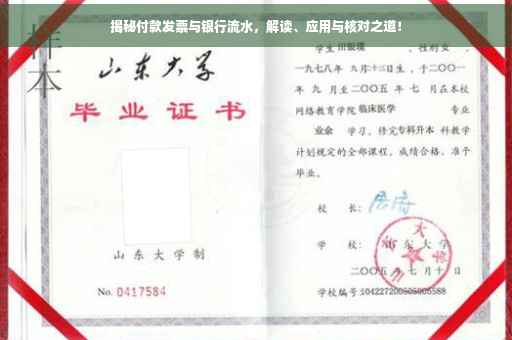 揭秘付款发票与银行流水，解读、应用与核对之道！
样本
山东大学
毕业证书
山东大学制
No. 0417584
学生
性别
一九七八年 九月十三日生，于二〇〇一
年 九 月至二〇〇五 年 七 月在本校
网络教育学院 临床医学 专业
业余 学习，修完专科升本 科教学
计划规定的全部课程，成绩合格，准予
毕业。
校 长：
学 校： 山东大学
二〇〇五 年 七 月 十 日
学校编号：